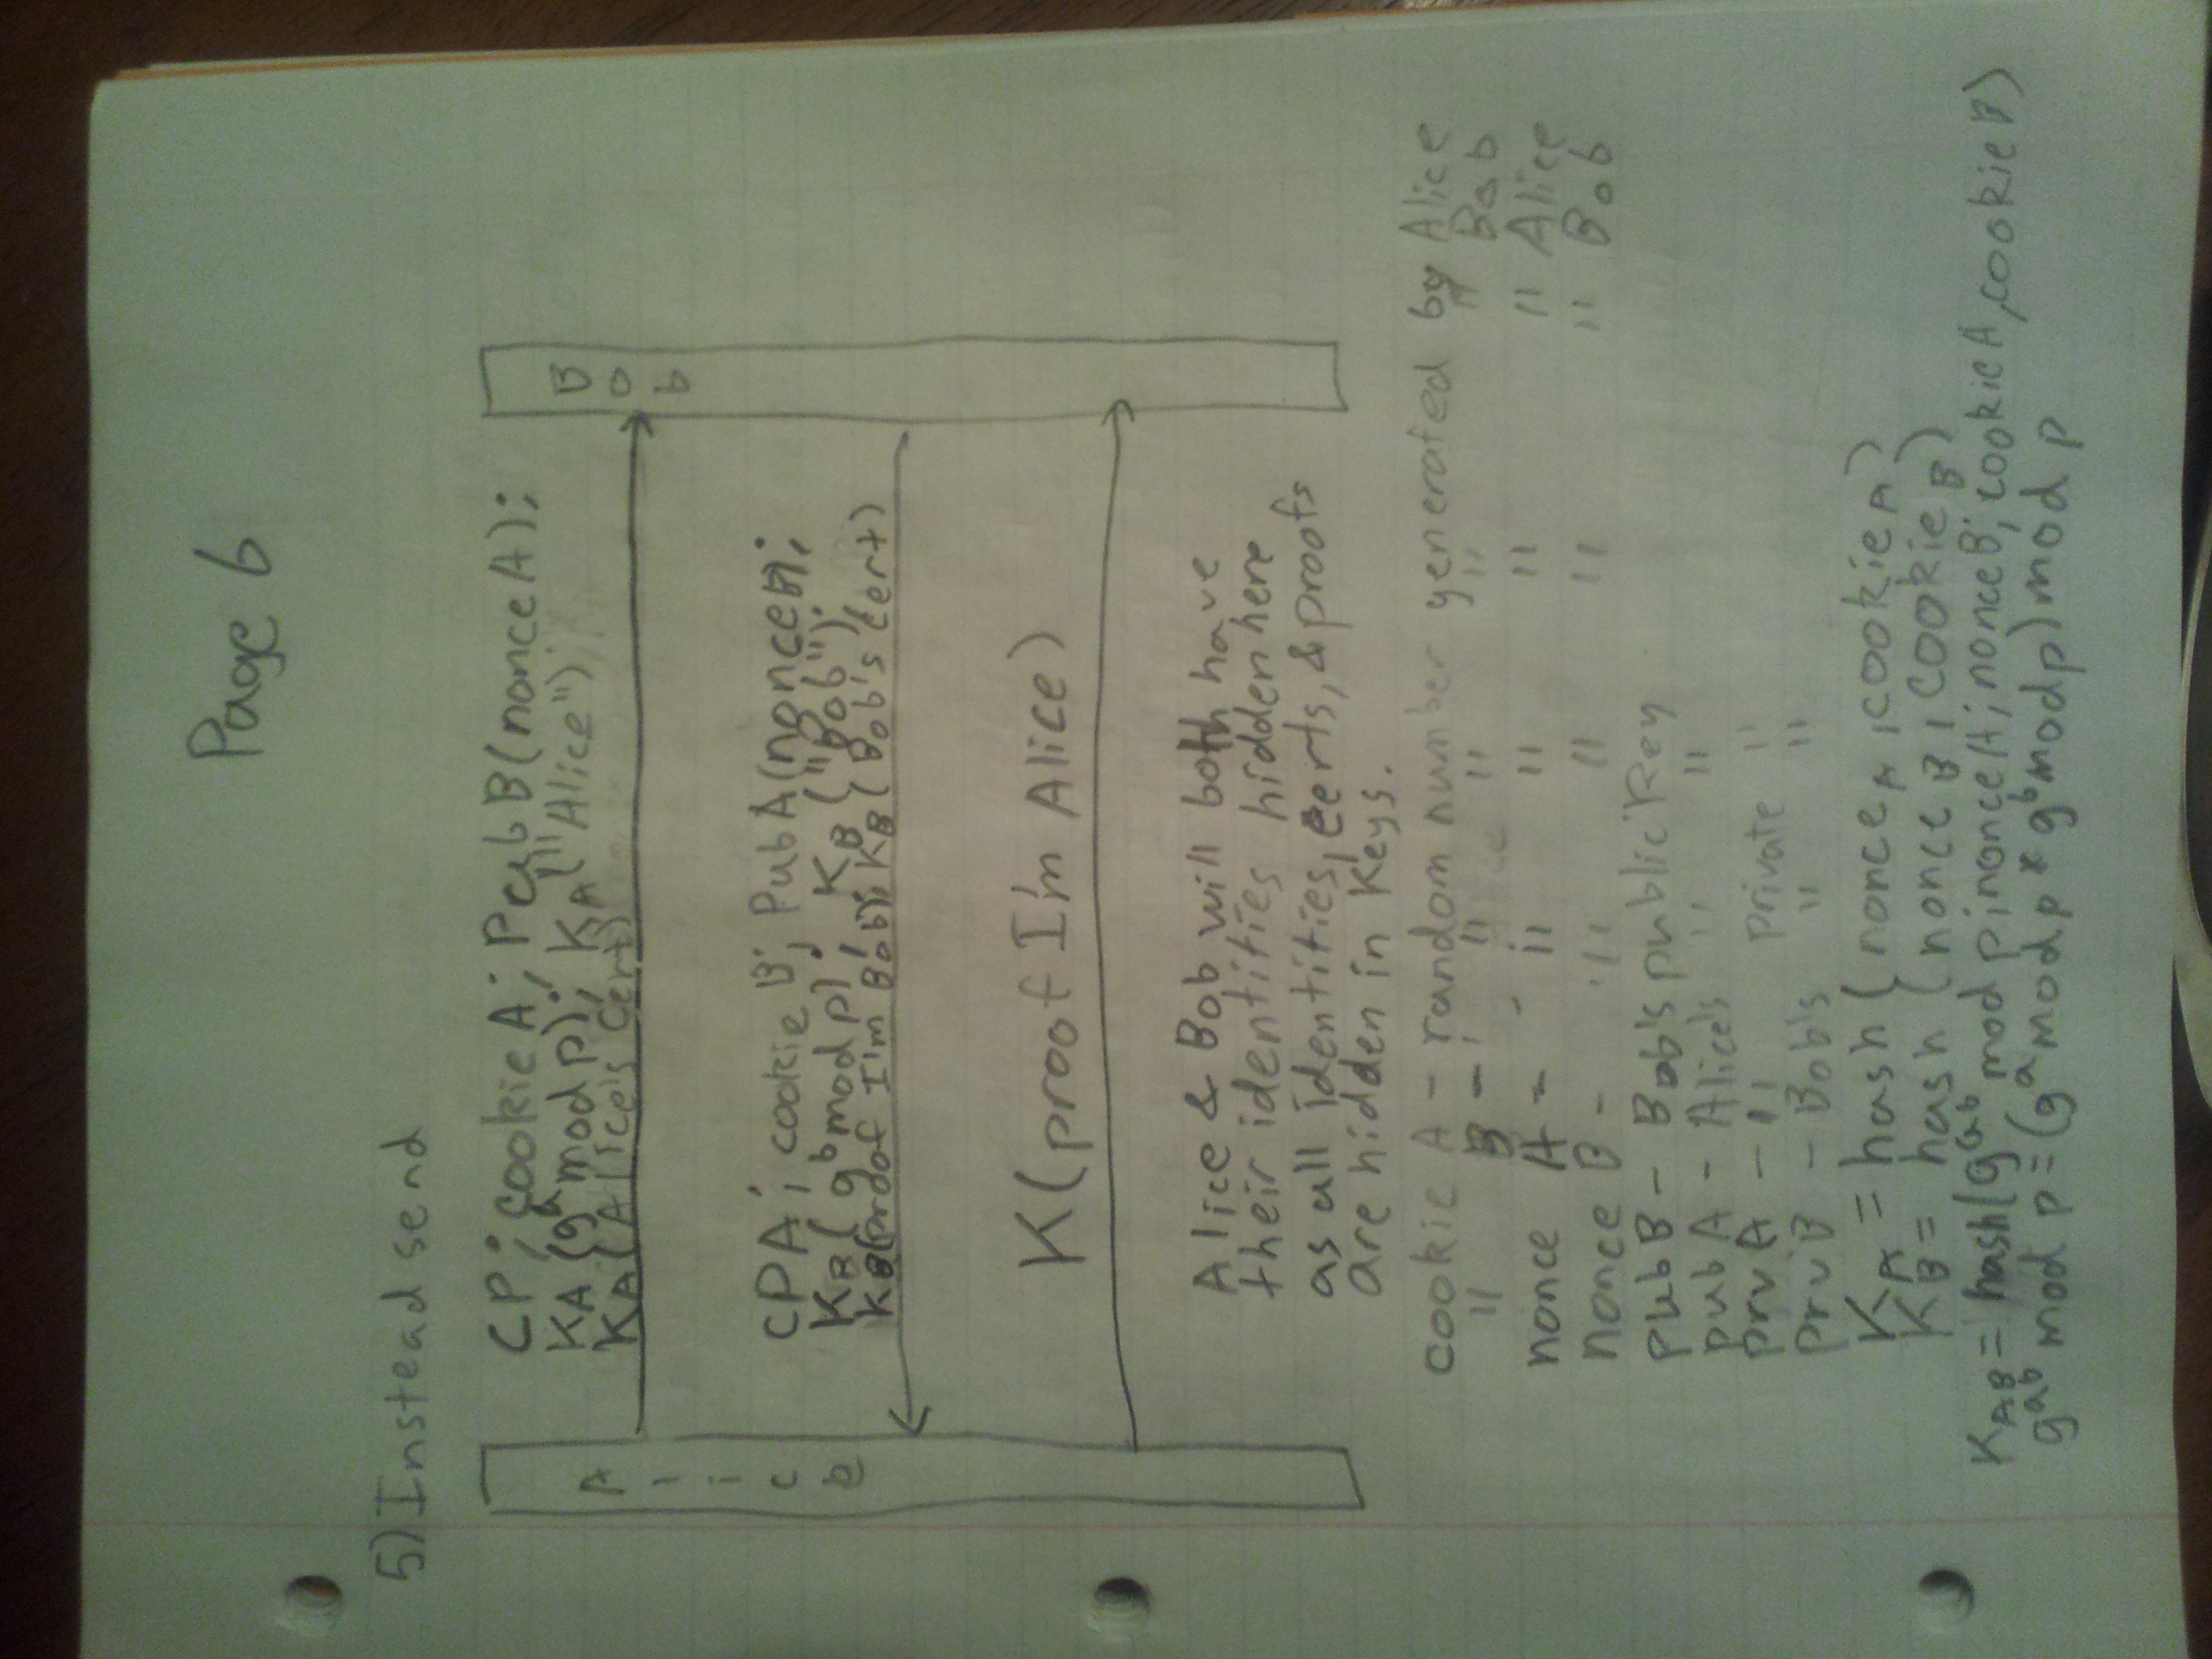 Page 6
5) Instead send
Alice
Bob
CP; cookie A; PubB(nonce A);
KA (g^a mod p); KA("Alice")
KA(Alice's Cert)
CPA; cookie B; PubA(nonceB);
KB( g^b mod p); KB ("Bob");
KB(proof I'm Bob); KB( Bob's Cert)
K(proof I'm Alice)
Alice & Bob will both have
their identities hidden here
as all identities, certs, & proofs
are hidden in Keys.
cookie A - random number generated by Alice
" B - " " " " Bob
nonce A - " " " " Alice
nonce B - " " " " Bob
pubB - Bob's public Key
pubA - Alice's " "
prvA - " private "
prvB - Bob's " "
KA = hash( nonceA, cookieA)
KB = hash (nonceB, cookieB)
KAB = hash(g^ab mod p; nonceA; nonceB; cookieA, cookieB)
g^ab mod p = (g^a mod p * g^b mod p) mod p